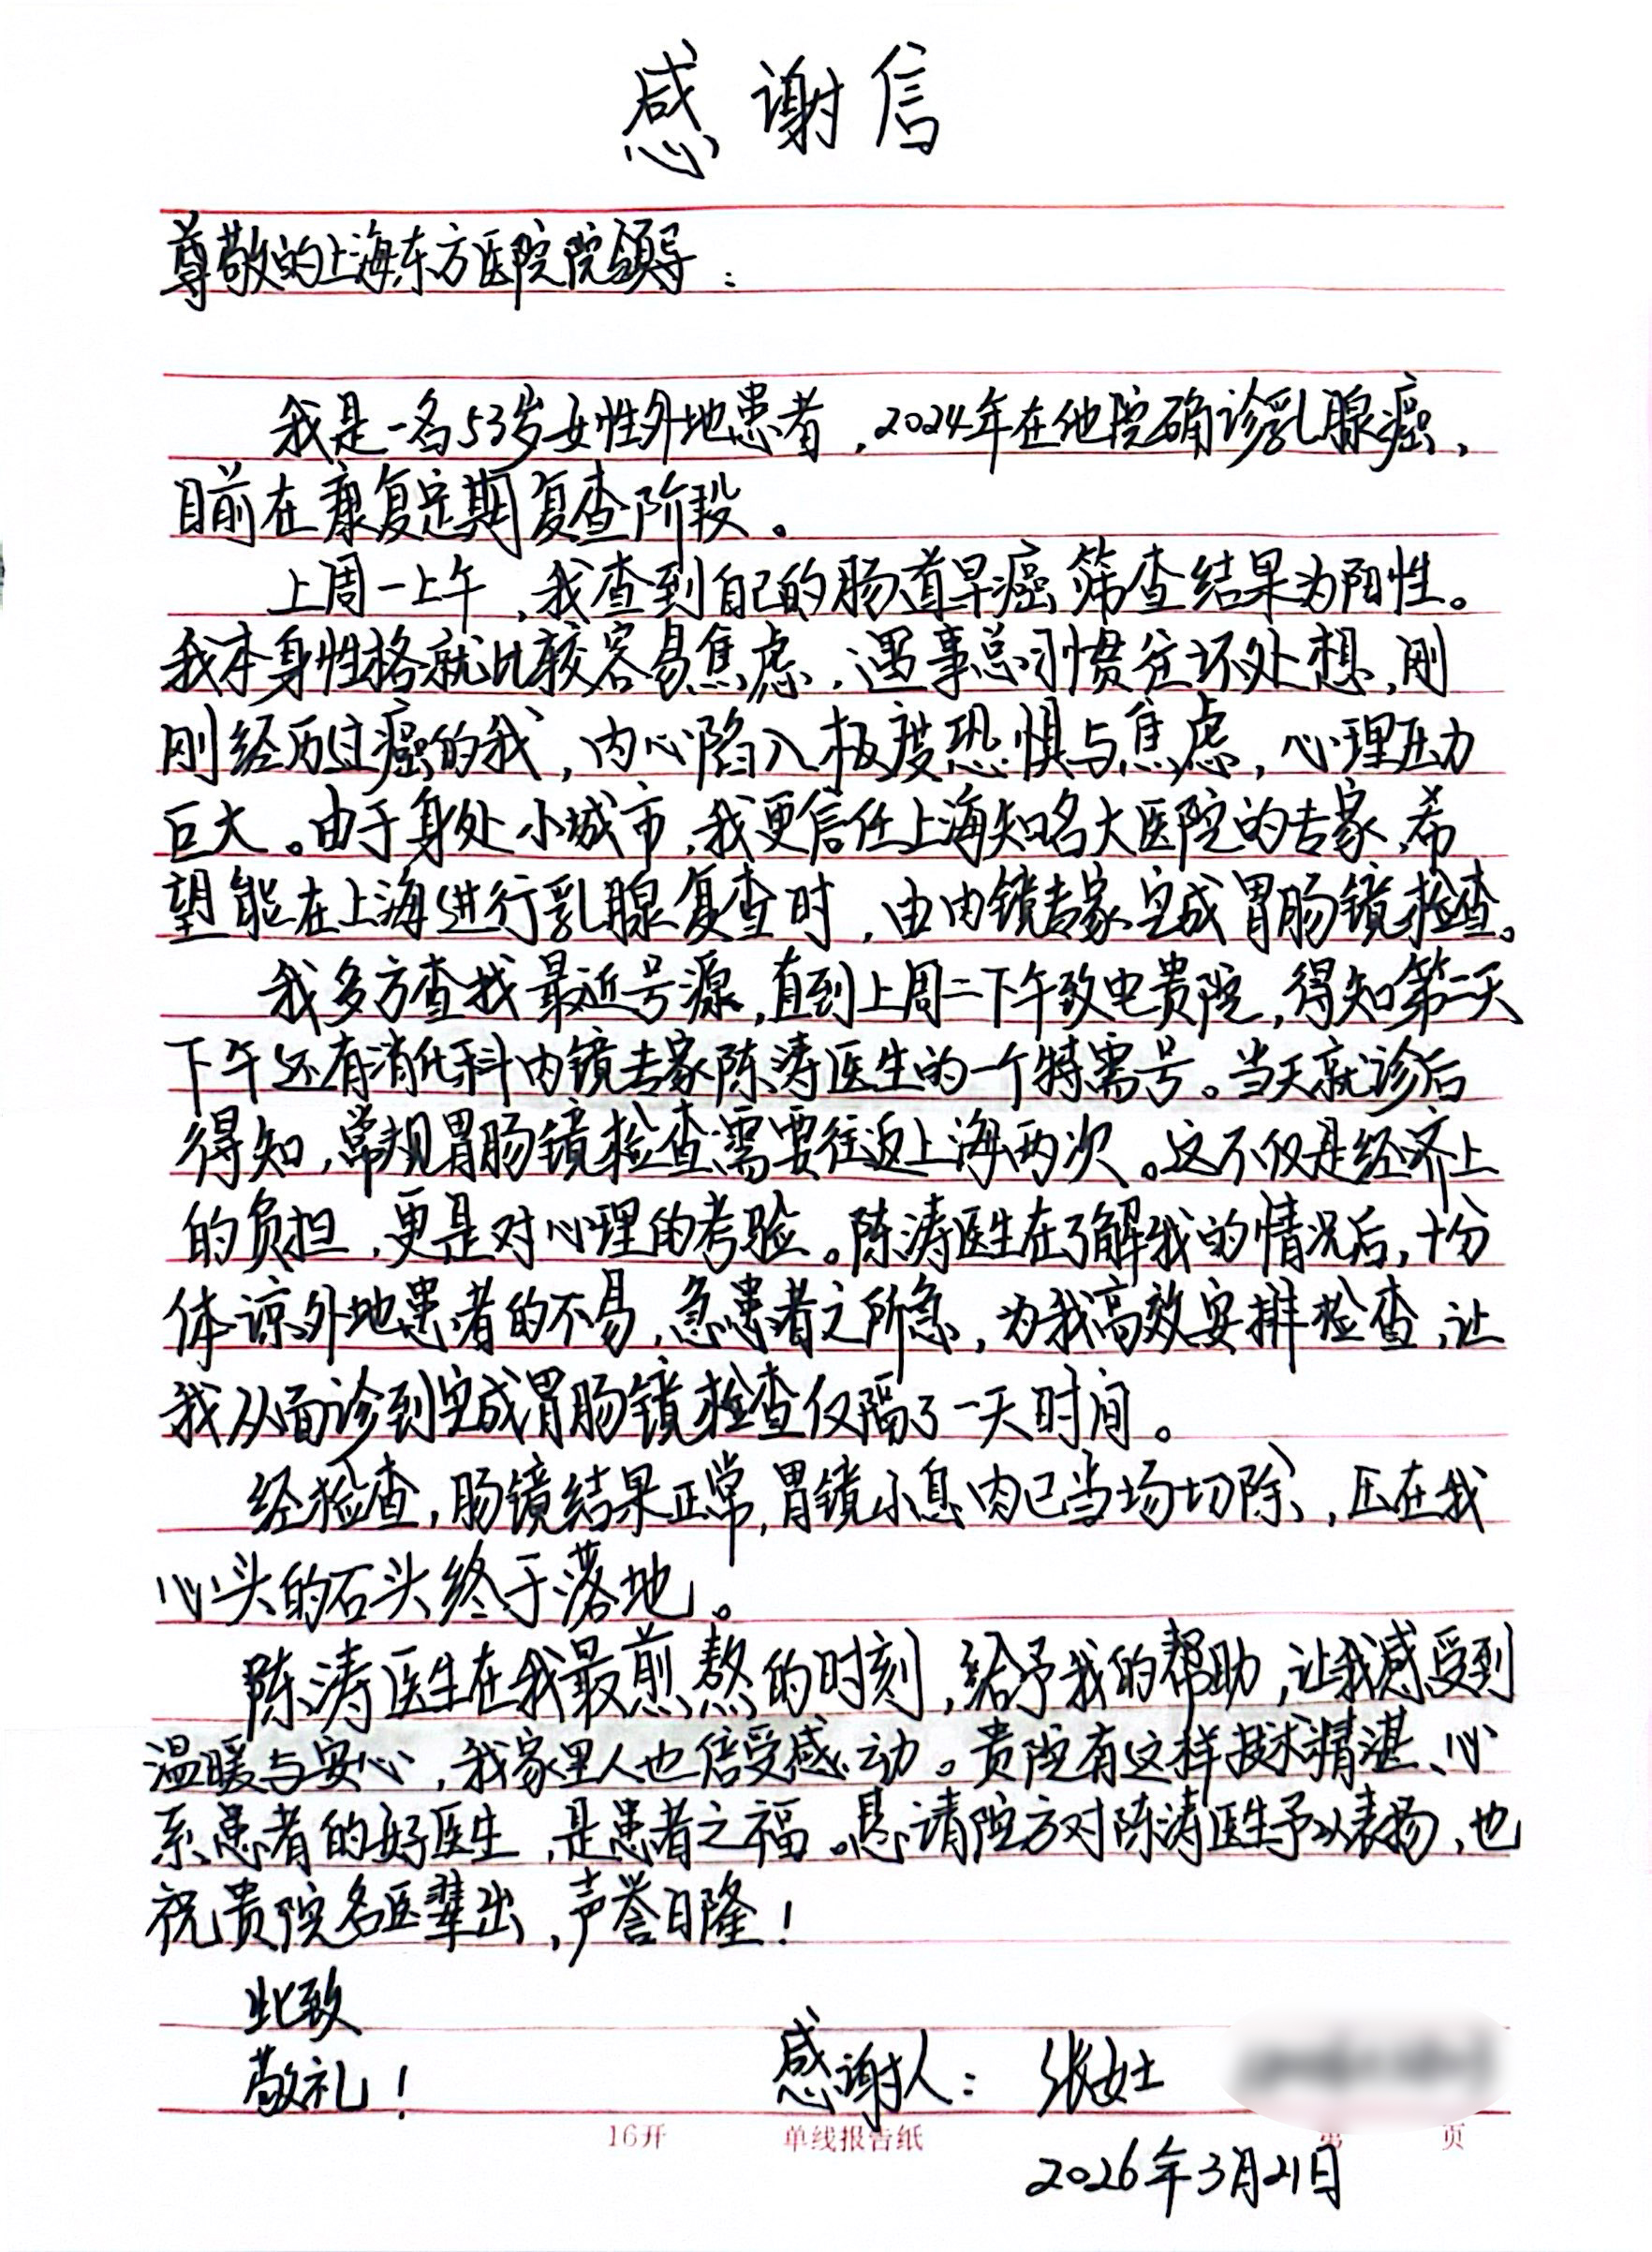 感谢信
尊敬的上海东方医院院领导：
我是一名53岁女性外地患者，2024年在他院确诊乳腺癌，
目前在康复定期复查阶段。
上周一上午，我查到自己的肠道早癌筛查结果为阳性。
我本身性格就比较容易焦虑，遇事总习惯往坏处想，刚
刚经历过癌的我，内心陷入极度恐惧与焦虑，心理压力
巨大。由于身处小城市，我更信任上海知名大医院的专家，希
望能在上海进行乳腺复查时，由内镜专家完成胃肠镜检查。
我多方查找最近号源，直到上周二下午致电贵院，得知第二天
下午还有消化科内镜专家陈涛医生的一个特需号。当天就诊后
得知，常规胃肠镜检查需要往返上海两次。这不仅是经济上
的负担，更是对心理的考验。陈涛医生在了解我的情况后，十分
体谅外地患者的不易，急患者之所急，为我高效安排检查，让
我从面诊到完成胃肠镜检查仅隔了一天时间。
经检查，肠镜结果正常，胃镜小息肉已当场切除，压在我
心头的石头终于落地。
陈涛医生在我最煎熬的时刻，给予我的帮助，让我感受到
温暖与安心，我家里人也倍受感动。贵院有这样技术精湛、心
系患者的好医生，是患者之福。恳请院方对陈涛医生予以表扬，也
祝贵院名医辈出，声誉日隆！
此致
敬礼！
感谢人：张女士
16开 单线报告纸 第 页
2026年3月21日